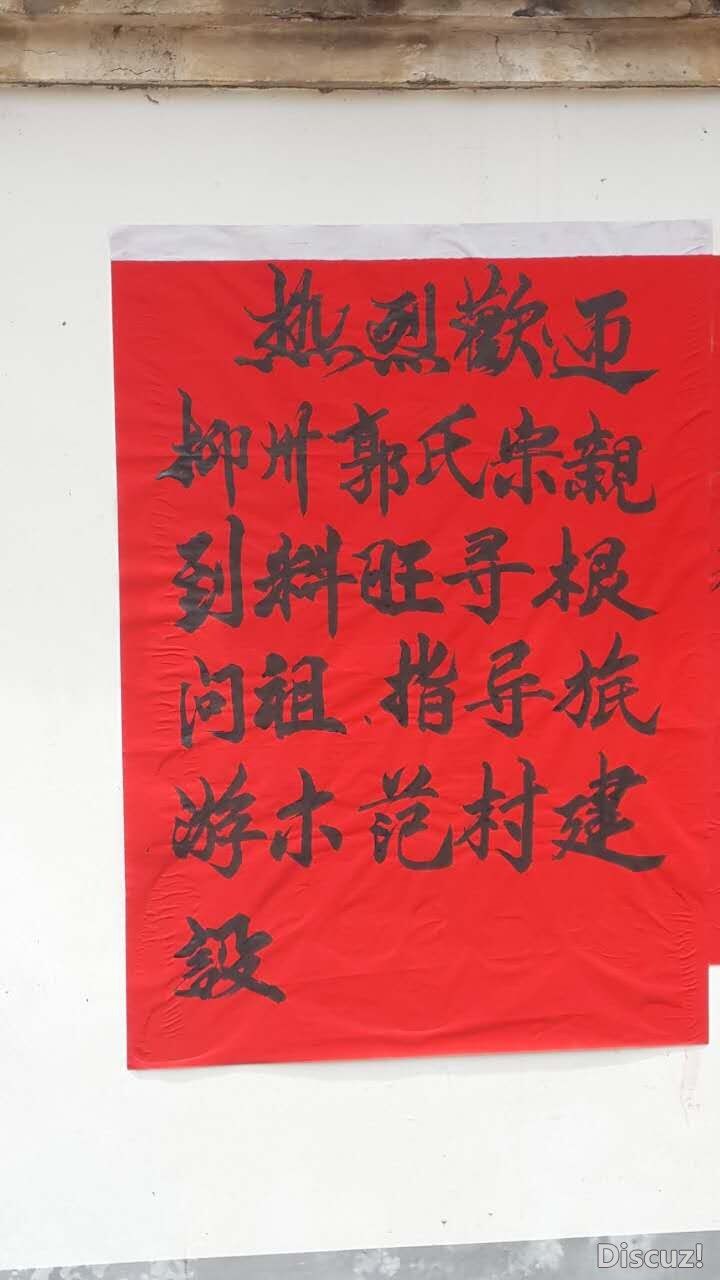 热烈歡迎
柳州郭氏宗親
到料旺寻根
问祖、指导旅
游示范村建
設
Discuz!